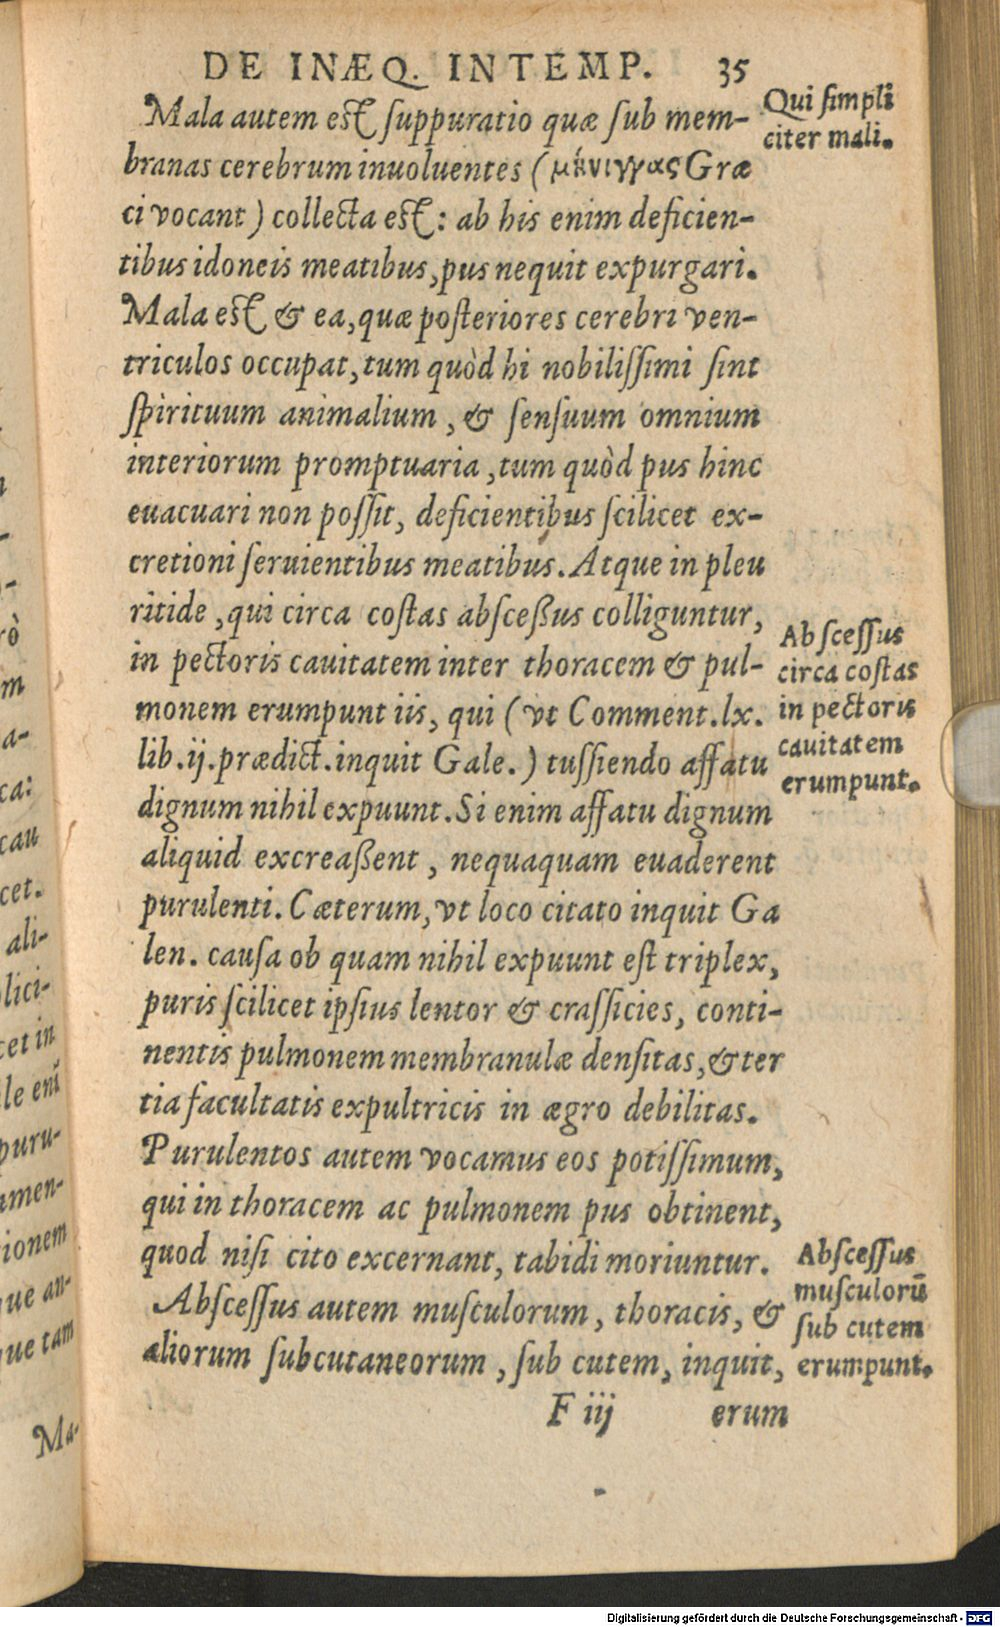 DE INÆQ. INTEMP. 35
Mala autem est suppuratio quæ sub mem-
branas cerebrum inuoluentes (μένιγγας Græ
ci vocant) collecta est: ab his enim deficien-
tibus idoneis meatibus, pus nequit expurgari.
Mala est & ea, quæ posteriores cerebri ven-
triculos occupat, tum quòd hi nobilissimi sint
spirituum animalium, & sensuum omnium
interiorum promptuaria, tum quòd pus hinc
euacuari non possit, deficientibus scilicet ex-
cretioni seruientibus meatibus. Atque in pleu
ritide, qui circa costas abscessus colliguntur,
in pectoris cauitatem inter thoracem & pul-
monem erumpunt iis, qui (vt Comment. lx.
lib. ij. prædict. inquit Gale.) tussiendo affatu
dignum nihil expuunt. Si enim affatu dignum
aliquid excreassent, nequaquam euaderent
purulenti. Cæterum, vt loco citato inquit Ga
len. causa ob quam nihil expuunt est triplex,
puris scilicet ipsius lentor & crassicies, conti-
nentis pulmonem membranulæ densitas, & ter
tia facultatis expultricis in ægro debilitas.
Purulentos autem vocamus eos potissimum,
qui in thoracem ac pulmonem pus obtinent,
quod nisi cito excernant, tabidi moriuntur.
Abscessus autem musculorum, thoracis, &
aliorum subcutaneorum, sub cutem, inquit,
F iij erum
Qui simpli
citer mali.
Abscessus
circa costas
in pectoris
cauitatem
erumpunt.
Abscessus
musculorū
sub cutem
erumpunt.
rò
m
a-
ca:
cau
cet.
ali-
lici-
cet in
le enī
puru-
amen-
ionem
que an-
que tam
Ma-
Digitalisierung gefördert durch die Deutsche Forschungsgemeinschaft - DFG